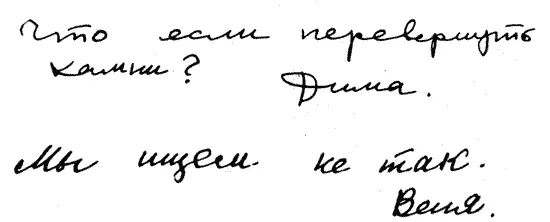 Что если перевернуть
камни?
Дима.
Мы ищем не так.
Веня.